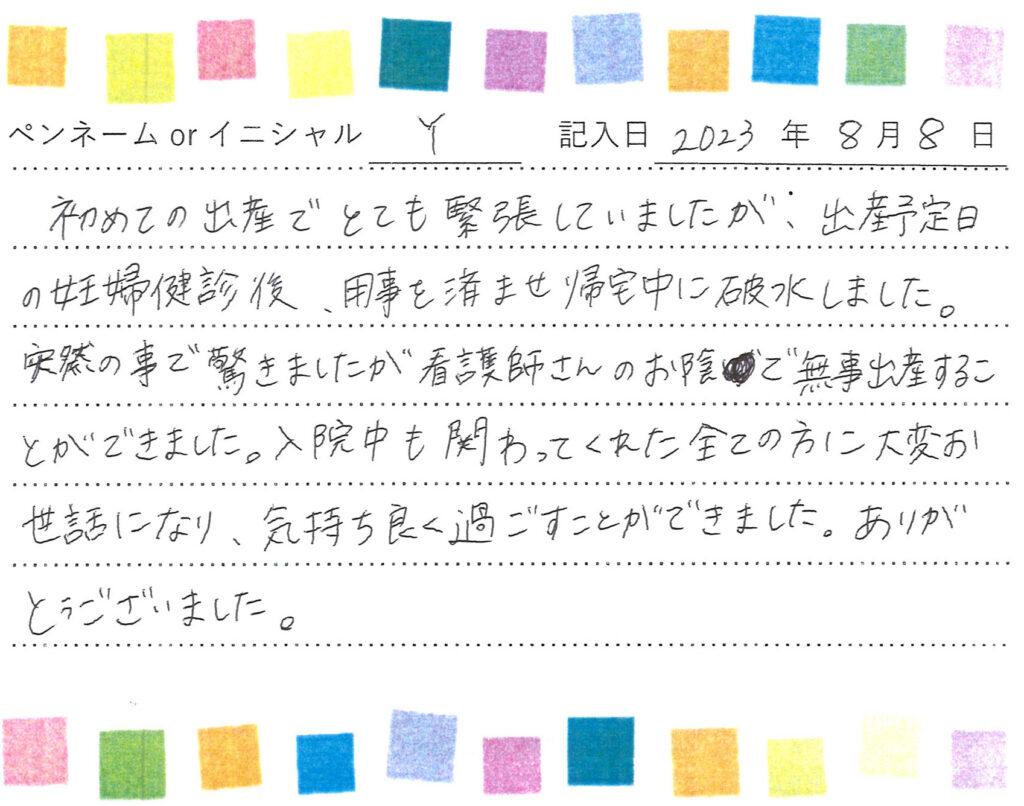 ペンネーム or イニシャル Y 記入日 2023 年 8 月 8 日
初めての出産でとても緊張していましたが、出産予定日
の妊婦健診後、用事を済ませ帰宅中に破水しました。
突然の事で驚きましたが看護師さんのお陰で無事出産するこ
とができました。入院中も関わってくれた全ての方に大変お
世話になり、気持ち良く過ごすことができました。ありが
とうございました。